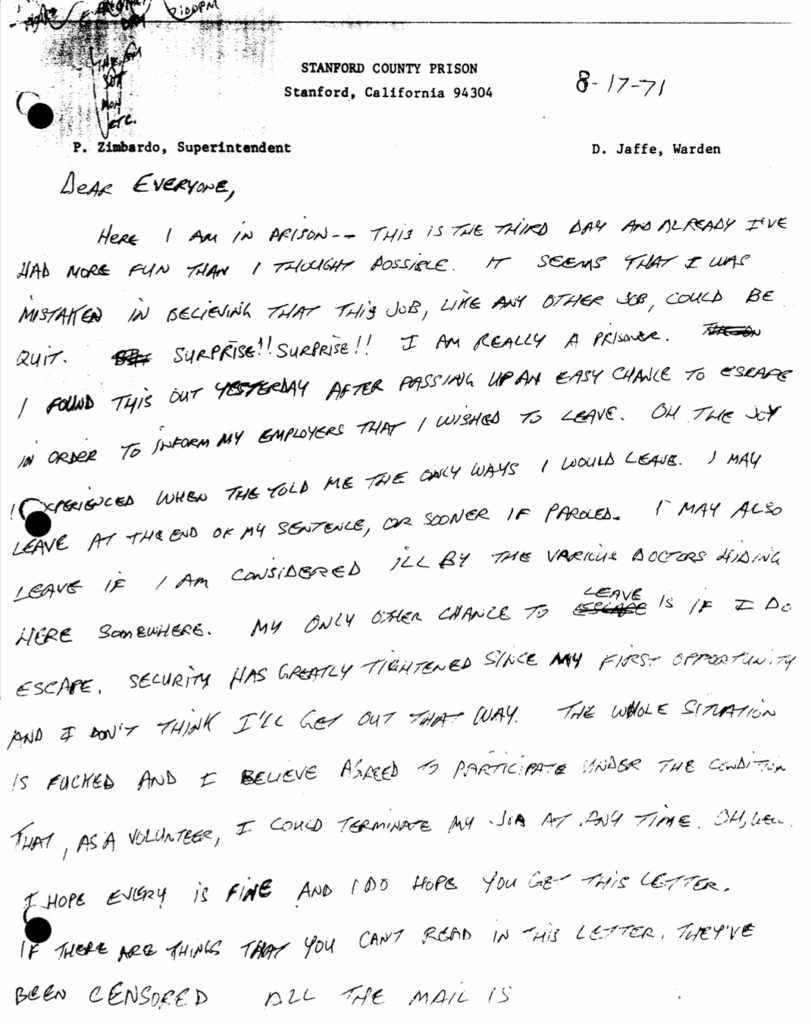 2:00PM
SAT
MON
ETC.
STANFORD COUNTY PRISON
Stanford, California 94304
8-17-71
P. Zimbardo, Superintendent
D. Jaffe, Warden
DEAR EVERYONE,
HERE I AM IN PRISON-- THIS IS THE THIRD DAY AND ALREADY I'VE
HAD MORE FUN THAN I THOUGHT POSSIBLE. IT SEEMS THAT I WAS
MISTAKEN IN BELIEVING THAT THIS JOB, LIKE ANY OTHER JOB, COULD BE
QUIT. SURPRISE!! SURPRISE!! I AM REALLY A PRISONER.
I FOUND THIS OUT YESTERDAY AFTER PASSING UP AN EASY CHANCE TO ESCAPE
IN ORDER TO INFORM MY EMPLOYERS THAT I WISHED TO LEAVE. OH THE JOY
I EXPERIENCED WHEN THE TOLD ME THE ONLY WAYS I WOULD LEAVE. I MAY
LEAVE AT THE END OF MY SENTENCE, OR SOONER IF PAROLED. I MAY ALSO
LEAVE IF I AM CONSIDERED ILL BY THE VARIOUS DOCTORS HIDING
HERE SOMEWHERE. MY ONLY OTHER CHANCE TO LEAVE IS IF I DO
ESCAPE. SECURITY HAS GREATLY TIGHTENED SINCE MY FIRST OPPORTUNITY
AND I DON'T THINK I'LL GET OUT THAT WAY. THE WHOLE SITUATION
IS FUCKED AND I BELIEVE AGREED TO PARTICIPATE UNDER THE CONDITION
THAT, AS A VOLUNTEER, I COULD TERMINATE MY JOB AT ANY TIME. OH, WELL.
I HOPE EVERY IS FINE AND I DO HOPE YOU GET THIS LETTER.
IF THERE ARE THINGS THAT YOU CAN'T READ IN THIS LETTER. THEY'VE
BEEN CENSORED ALL THE MAIL IS